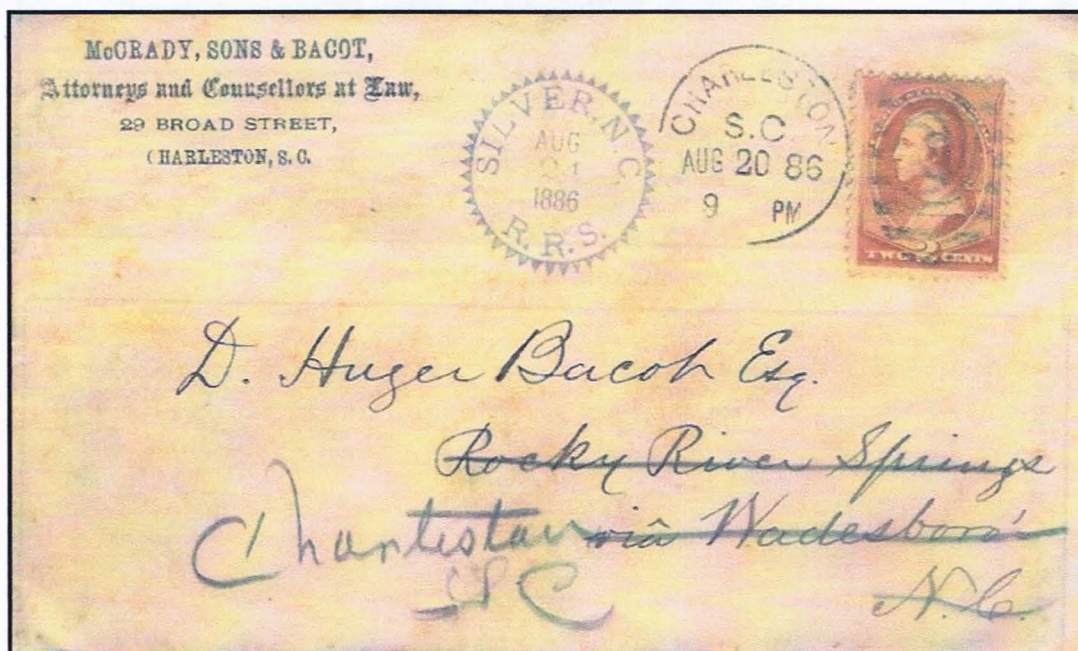 McCRADY, SONS & BACOT,
Attorneys and Counsellors at Law,
29 BROAD STREET,
CHARLESTON, S. C.
SILVER, N. C.
AUG
21
1886
R. R. S.
CHARLESTON
S.C.
AUG 20 86
9 PM
2
TWO CENTS
D. Huger Bacot Esq.
Rocky River Springs
via Wadesboro'
N.C.
Charleston
S C